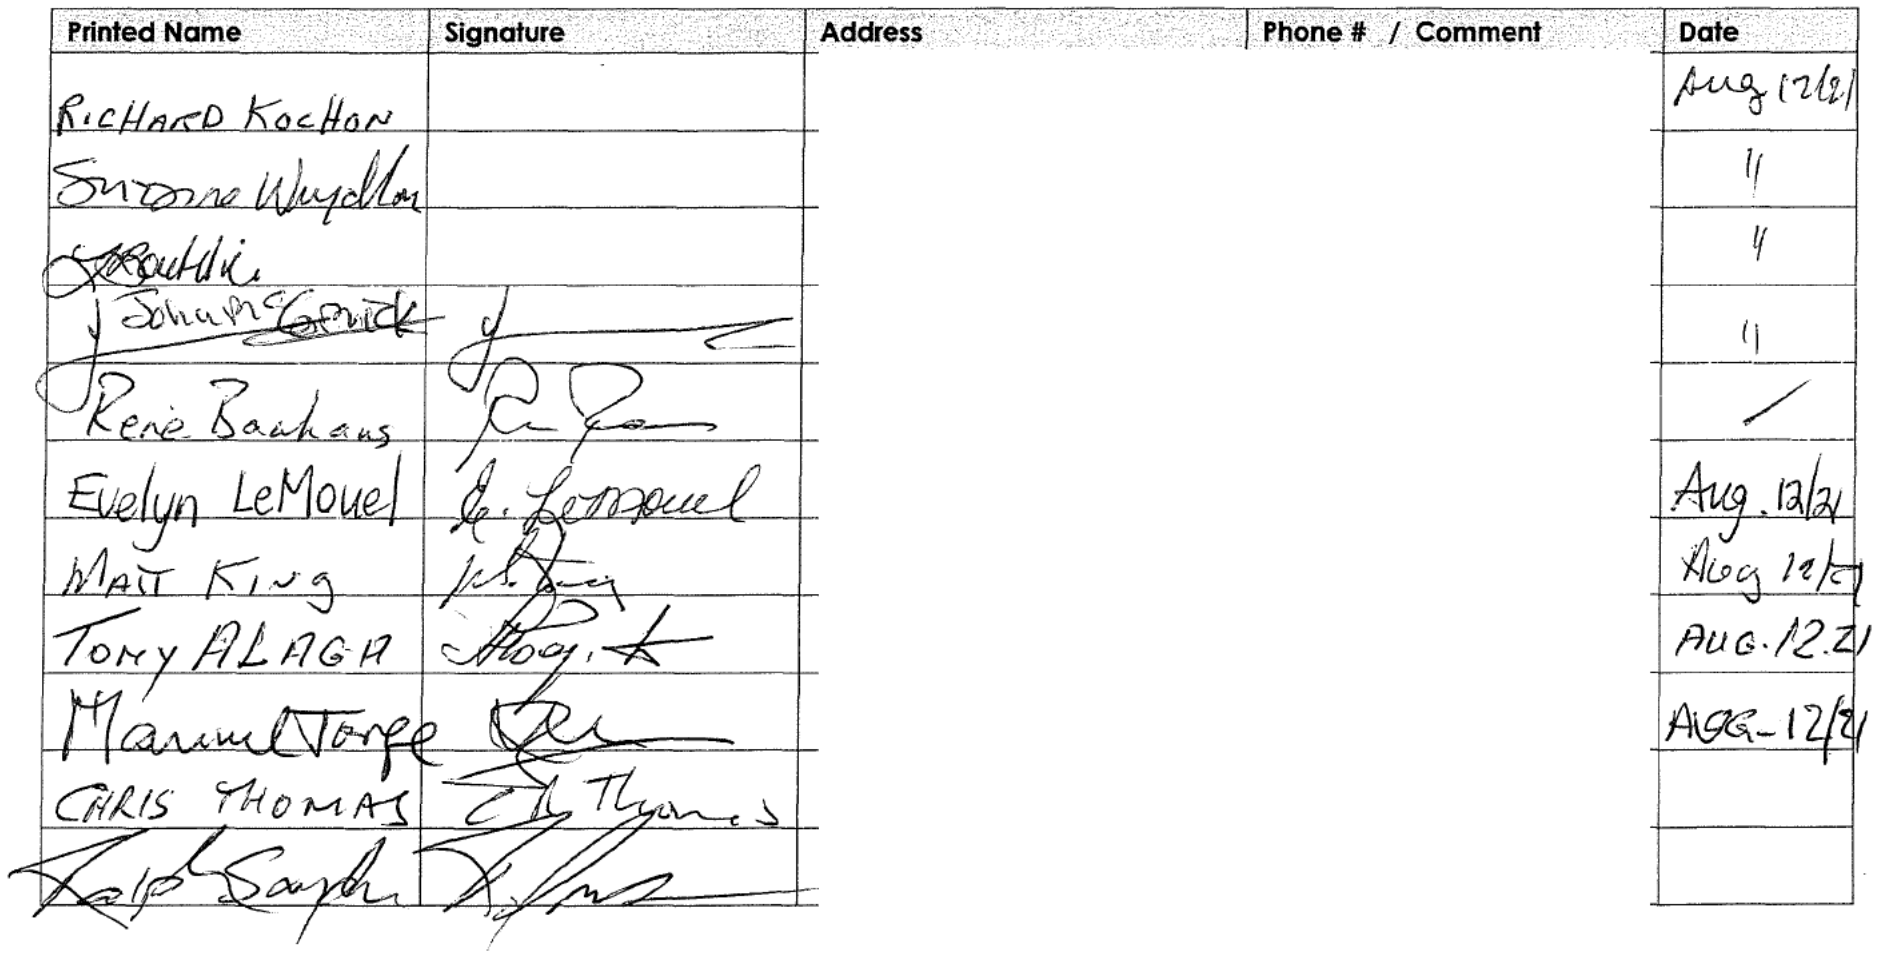 Printed Name Signature Address Phone # / Comment Date
RICHARD KOCHON Aug 12/21
Suzanne "
"
John McGorrick "
René Bauhaus /
Evelyn LeMouel E. Lemouel Aug. 12/21
MATT KING M. King Aug 12/21
TONY ALAGA AUG. 12.21
Manuel Jorge AUG- 12/21
CHRIS THOMAS Ch Thomas
Ralph